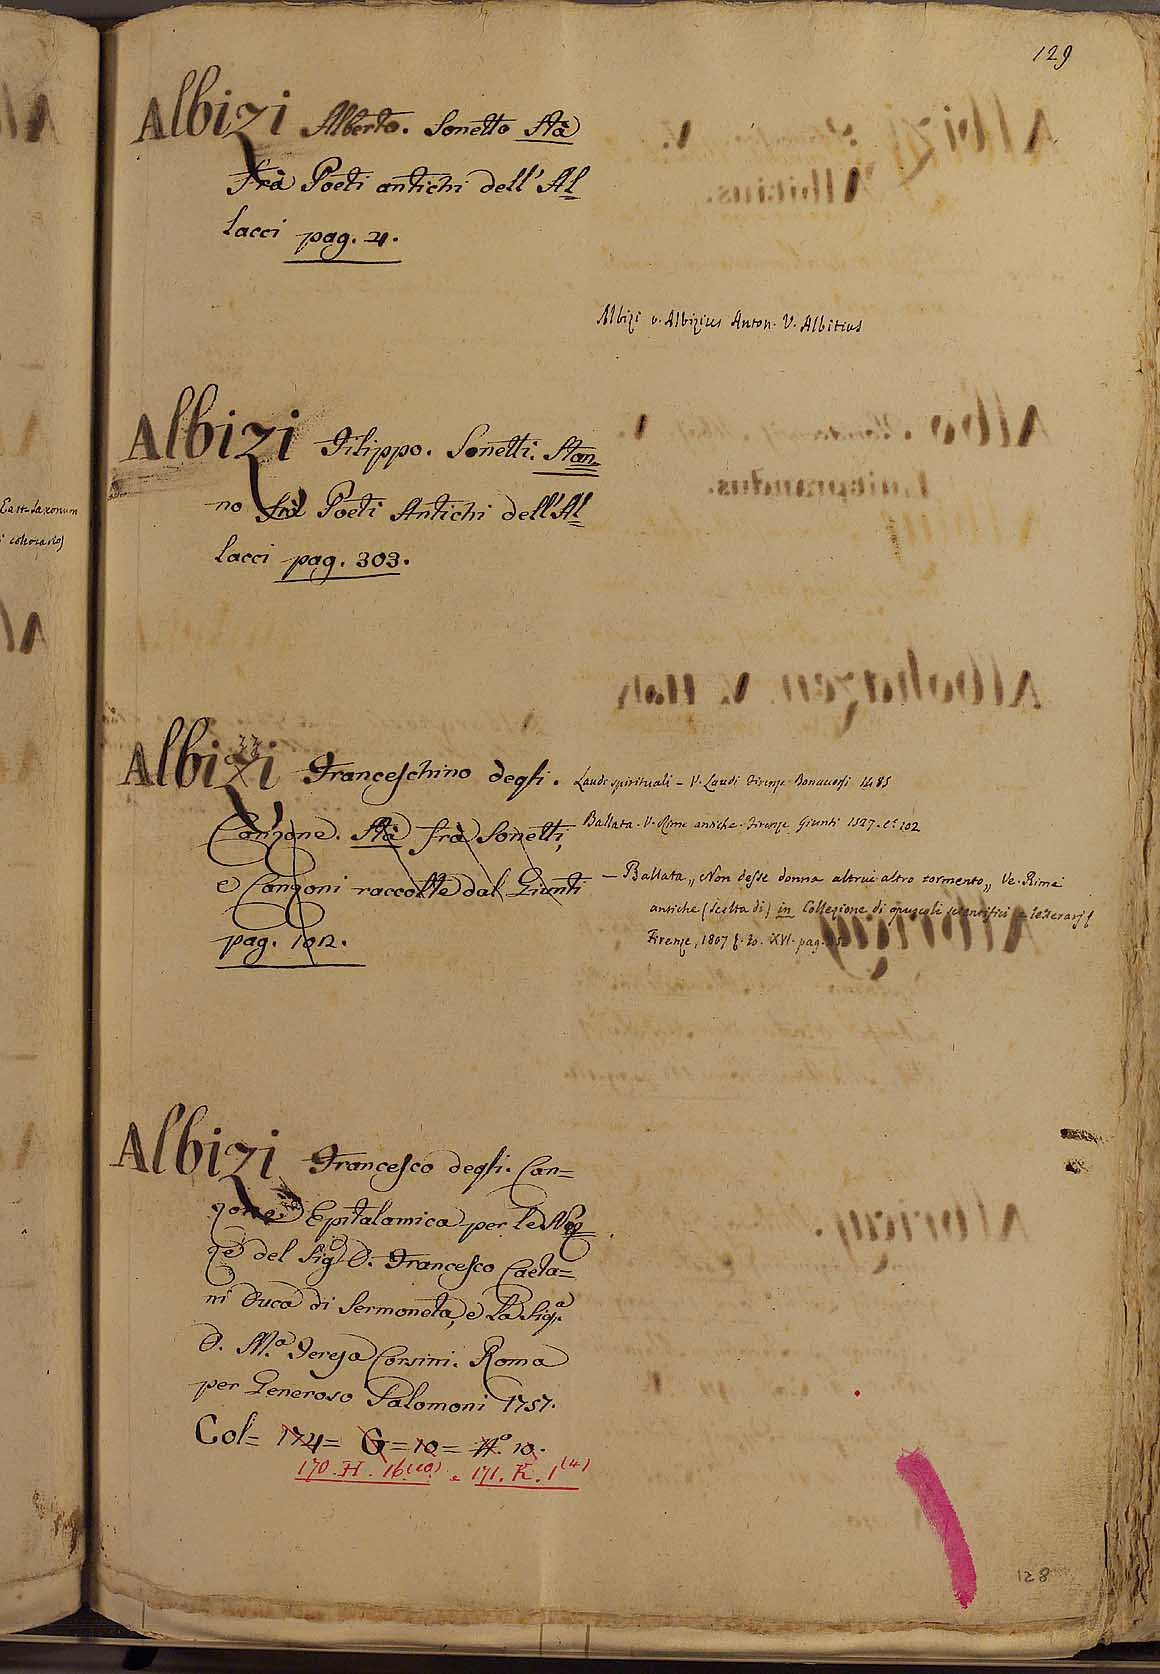 129
Albizi Alberto. Sonetto Stà
frà Poeti antichi dell' Al
lacci pag. 4.
Albizi v. Albizius Anton. V. Albitius
Albizi Filippo. Sonetti. Stan
no frà Poeti Antichi dell' Al
lacci pag. 303.
East-Saxonum
Albizzi Franceschino degli.
Canzone. Stà frà Sonetti,
e Canzoni raccolte dal Giunti
pag. 102.
Laudi spirituali - V. Laudi Firenze Bonaccorsi 1485
Ballata. V. Rime antiche. Firenze Giunti 1527. c. 102
- Ballata „ Non desse donna altrui altro tormento„ Ve. Rime
antiche (Scelta di) in Collezione di opuscoli scientifici e letterarj
Firenze, 1807 to. XVI. pag.
Albizi Francesco degli. Can=
zone Epitalamica per le Noz
ze del Sig. D. Francesco Caeta=
ni Duca di Sermoneta, e la Sig.a
D. M.a Teresa Corsini. Roma
per Generoso Salomoni 1757.
Col= 174= G=10= N.o 10.
170. H. 16.(10.) e 171. K. 1(4)
128